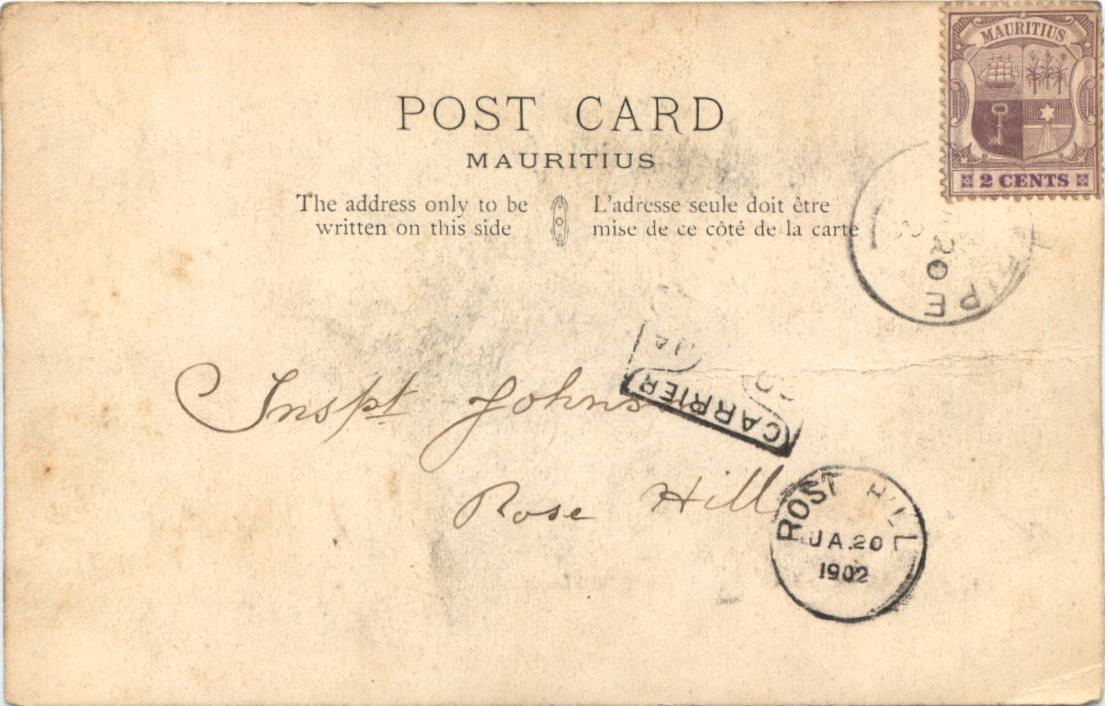 MAURITIUS
2 CENTS
POST CARD
MAURITIUS
The address only to be
written on this side
L'adresse seule doit être
mise de ce côté de la carte
20
E
CARRIER
JA
20
Inspt Johns
Rose Hill
ROST HILL
JA.20
1902